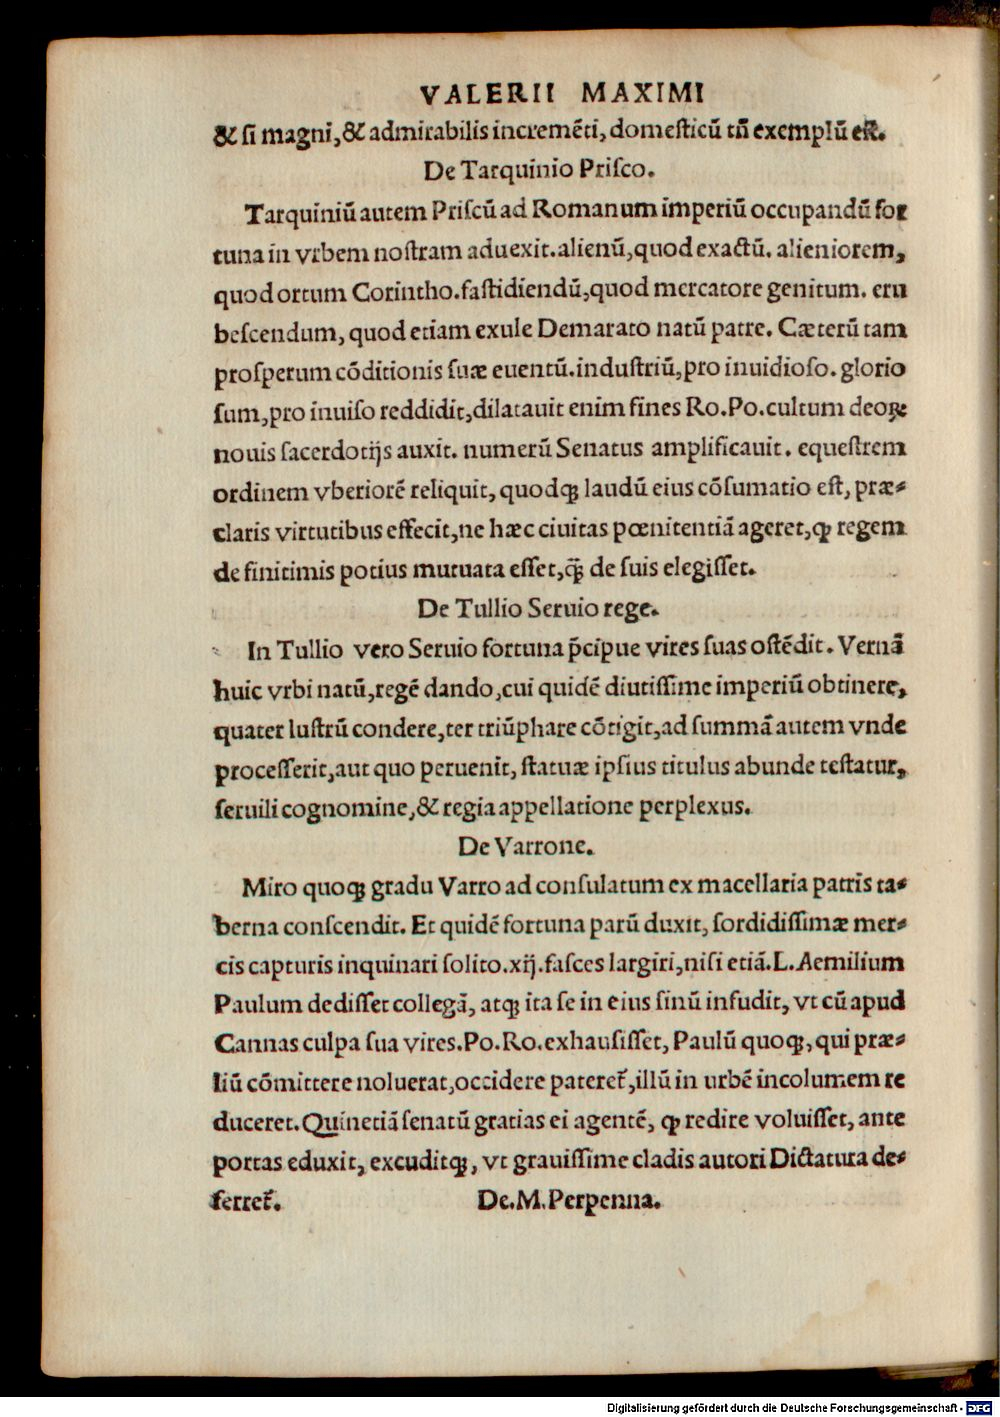 VALERII MAXIMI
& ſi magni, & admirabilis incremẽti, domeſticũ tñ exemplũ eſt.
De Tarquinio Priſco.
Tarquiniũ autem Priſcũ ad Romanum imperiũ occupandũ for
tuna in vrbem noſtram aduexit. alienũ, quod exactũ. alieniorem,
quod ortum Corintho. faſtidiendũ, quod mercatore genitum. eru
beſcendum, quod etiam exule Demarato natũ patre. Cæterũ tam
proſperum cõditionis ſuæ euentũ. induſtriũ, pro inuidioſo. glorio
ſum, pro inuiſo reddidit, dilatauit enim fines Ro. Po. cultum deoꝝ
nouis ſacerdotijs auxit. numerũ Senatus amplificauit. equeſtrem
ordinem vberiorẽ reliquit, quodq; laudũ eius cõſumatio eſt, præ-
claris virtutibus effecit, ne hæc ciuitas pœnitentiã ageret, ꝙ regem
de finitimis potius mutuata eſſet, q̃ȝ de ſuis elegiſſet.
De Tullio Seruio rege.
In Tullio vero Seruio fortuna p̃cipue vires ſuas oſtẽdit. Vernã
huic vrbi natũ, regẽ dando, cui quidẽ diutiſſime imperiũ obtinere,
quater luſtrũ condere, ter triũphare cõtigit, ad ſummã autem vnde
proceſſerit, aut quo peruenit, ſtatuæ ipſius titulus abunde teſtatur,
ſeruili cognomine, & regia appellatione perplexus.
De Varrone.
Miro quoq; gradu Varro ad conſulatum ex macellaria patris ta-
berna conſcendit. Et quidẽ fortuna parũ duxit, ſordidiſſimæ mer-
cis capturis inquinari ſolito. xij. faſces largiri, niſi etiã. L. Aemilium
Paulum dediſſet collegã, atq; ita ſe in eius ſinũ infudit, vt cũ apud
Cannas culpa ſua vires. Po. Ro. exhauſiſſet, Paulũ quoq;, qui præ-
liũ cõmittere noluerat, occidere pateret᷑, illũ in urbẽ incolumem re
duceret. Quinetiã ſenatũ gratias ei agentẽ, ꝙ redire voluiſſet, ante
portas eduxit, excuditq;, vt grauiſſime cladis autori Dictatura de-
ferret᷑. De. M. Perpenna.
Digitalisierung gefördert durch die Deutsche Forschungsgemeinschaft - DFG